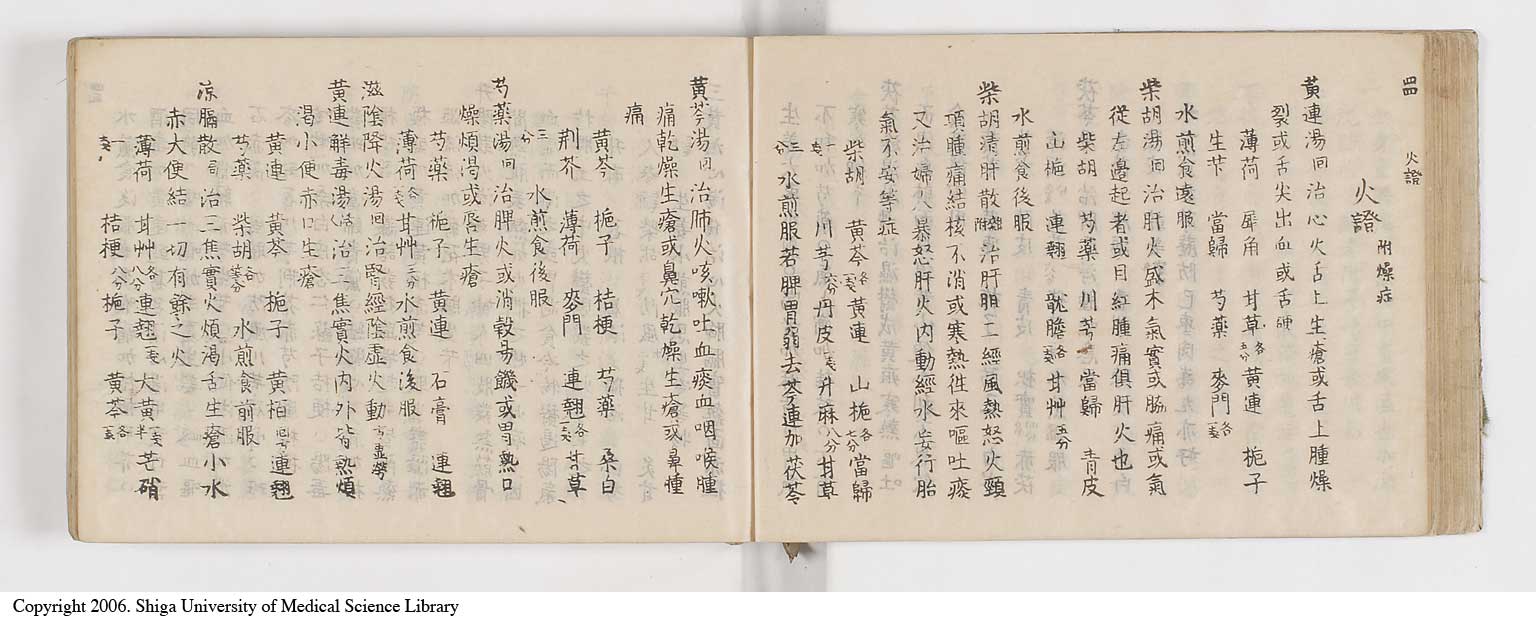 四四 火證
火證 附燥症
黃連湯回治心火舌上生瘡或舌上腫燥
裂或舌尖出血或舌硬
薄荷 犀角 甘草各五分 黃連 梔子
生芐 當歸 芍藥 麥門各
水煎食遠服
柴胡湯回治肝火盛木氣實或脇痛或氣
從左邊起者或目紅腫痛俱肝火也
柴胡 芍藥 川芎 當歸 青皮
山梔 連翹 龍膽各 甘艸五分
水煎食後服
柴胡清肝散 治肝胆二經風熱怒火頸
項腫痛結核不消或寒熱往來嘔吐痰
又治婦人暴怒肝火内動經水妄行胎
氣不安等症
柴胡 黃芩各 黃連 山梔各七分 當歸
川芎六分 丹皮 升麻八分 甘草
三分 水煎服若脾胃弱去芩連加茯苓
黃芩湯回治肺火咳嗽吐血痰血咽喉腫
痛乾燥生瘡或鼻穴乾燥生瘡或鼻腫
痛
黃芩 梔子 桔梗 芍藥 桑白
荆芥 薄荷 麥門 連翹各 甘草
三分 水煎食後服
芍藥湯回治脾火或消穀易饑或胃熱口
燥煩渴或唇生瘡
芍藥 梔子 黃連 石膏 連翹
薄荷各 甘艸三分 水煎食後服
滋陰降火湯回治腎經陰虛火動方虛勞
黃連解毒湯 治三焦實火内外皆熱煩
渴小便赤口生瘡
黃連 黃芩 梔子 黃栢 連翹
芍藥 柴胡各等分 水煎食前服
涼膈散 治三焦實火煩渴舌生瘡小水
赤大便結一切有餘之火
薄荷 甘艸各八分 連翹 大黃 芒硝
桔梗八分 梔子 黃芩各